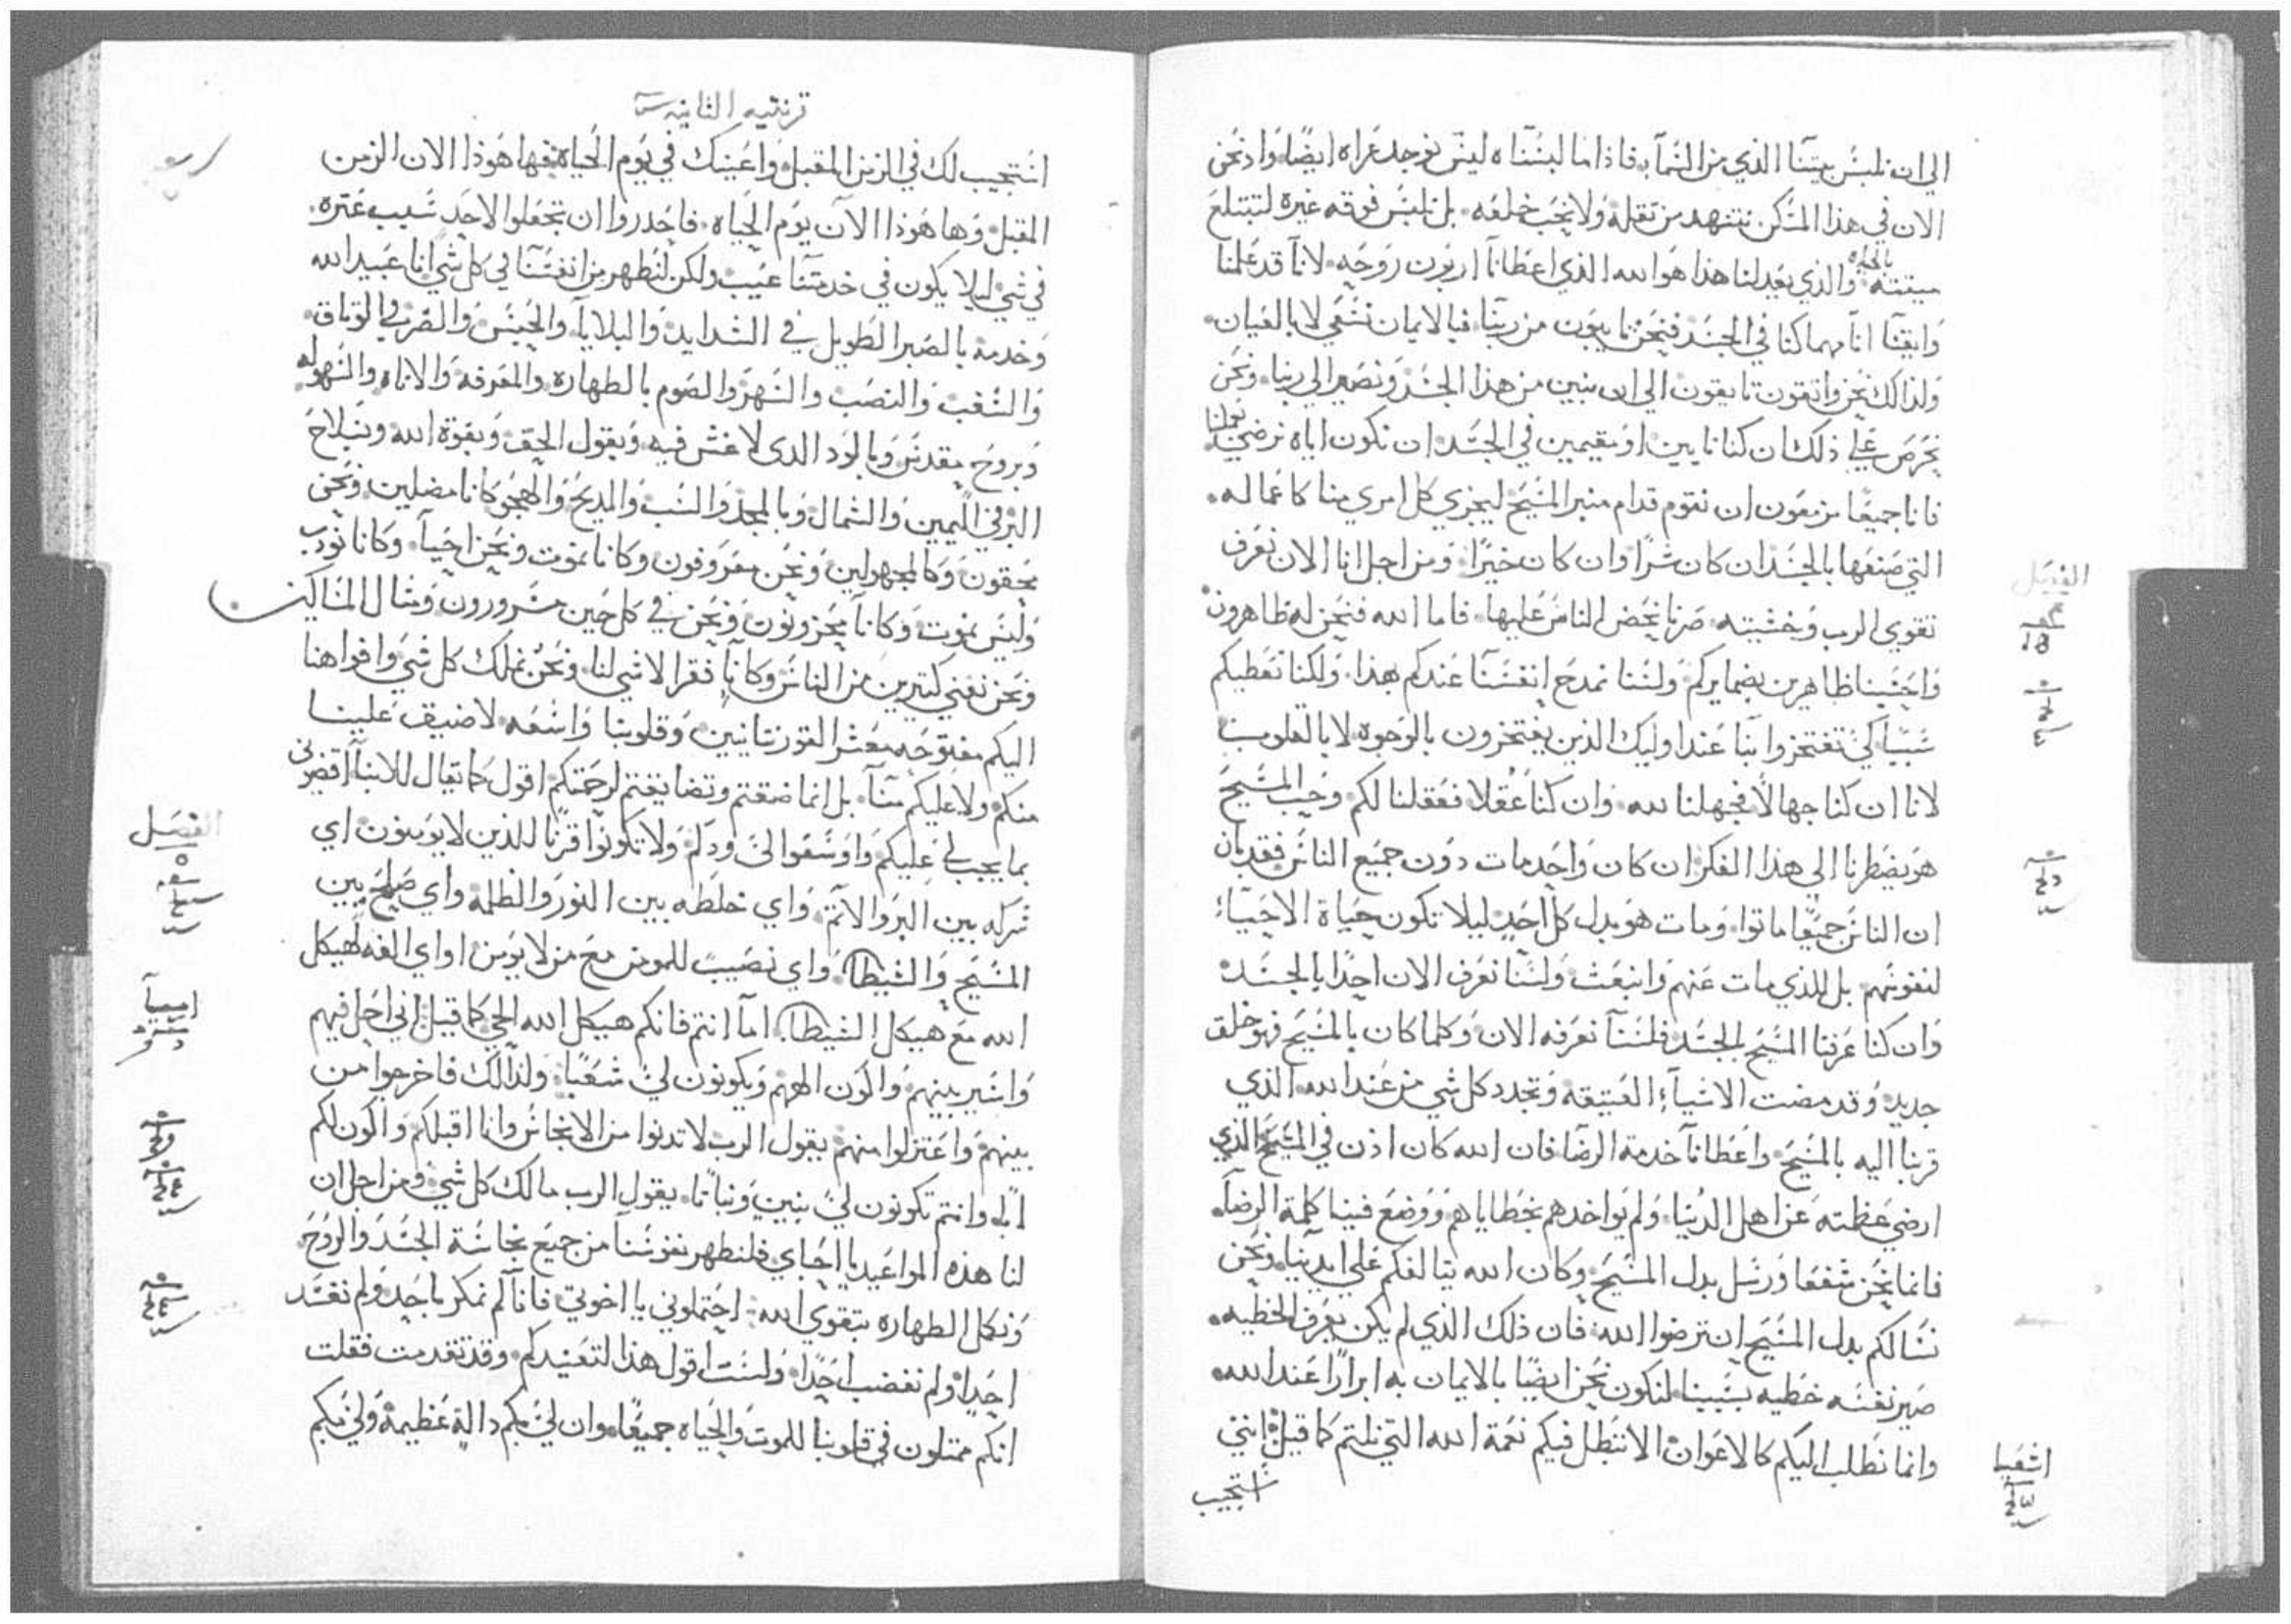 الي ان نلبس بيتنا الذي من السمآ. فاذا ما لبسناه ليس نوجد عراه ايضًا. واذ نحن
الان في هذا المسكن نتنهد من ثقله ولا نحب خلعه. بل نلبس فوقه غيره لتبتلع
بالحياه
ميتته. والذي يعدلنا هذا هو الله الذي اعطانا اربون روحه. لانا قد علمنا
وايقنا انا مهما كنا في الجسد فنحن نايبون من ربنا. فبالايمان نسعي لا بالعيان.
ولذالك نحن واثقون تايقون الي ان نبين من هذا الجسد ونصير الي ربنا. ونحن
نحرص علي ذلك ان كنا نايين او مقيمين في الجسد ان نكون اياه نرضي
فانا جميعًا مزمعون ان نقوم قدام منبر المسيح ليجزي كل امري منا كاعماله.
التي صنعها بالجسد ان كان شرًا وان كان خيرًا. ومن اجل انا الان نعرف
تقوي الرب وخشيته. صرنا نحض الناس عليها. فاما الله فنحن له ظاهرون
واحسبنا ظاهرين بضمايركم. ولسنا نمدح انفسنا عندكم بهذا. ولكنا نعطيكم
سببًا كي تفتخروا بنا عند اوليك الذين يفتخرون بالوجوه لا بالقلوب
لانا ان كنا جهالًا فجهلنا لله. وان كنا عقلا فعقلنا لكم. وحب المسيح
هو يضطرنا الي هذا الفكر ان كان واحد مات دون جميع الناس فقد بان
ان الناس جميعًا ماتوا. ومات هو بدل كل احد ليلا تكون حياة الاحيآ
لنفوسهم. بل للذي مات عنهم وانبعث. ولسنا نعرف الان احدًا بالجسد
وان كنا عرفنا المسيح بالجسد فلسنا نعرفه الان. وكلما كان بالمسيح فهو خلق
جديد. وقد مضت الاشيآ العتيقه. وتجدد كل شي من عند الله. الذي
قربنا اليه بالمسيح. واعطانا خدمة الرضا. فان الله كان اذن في المسيح الذي
ارضي عظمته عن اهل الدنيا. ولم يواخدهم بخطاياهم. ووضع فينا كلمة الرضا.
فانما نحن شفعا ورسل بدل المسيح. وكان الله يتالفكم علي ايدينا. ونحن
نسالكم بدل المسيح ان ترضوا الله. فان ذلك الذي لم يكن يعرف الخطيه.
صير نفسه خطيه بسببنا. لنكون نحن ايضًا بالايمان به ابرارًا عند الله.
وانما نطلب اليكم كالاعوان الا تتطل فيكم نعمة الله التي نلتم كما قيل انني
استجيب
الفصل
اشعيا
قرنتيه الثانيه
استجيب لك في الزمن المقبل. واعينك في يوم الحياة. فها هوذا الان الزمن
المقبل. وها هوذا الآن يوم الحياه. فاحدروا ان تجعلوا لاحد سبب عثره.
في شي ليلا يكون في خدمتنا عيب. ولكن لنظهر من انفسنا في كل شي انا عبيد الله
وخدمه بالصبر الطويل في الشدايد والبلايا. والحبس والضرب في الوثاق.
والشغب والنصب والسهر والصوم بالطهاره والمعرفه والاناه والسهوله
وبروح مقدس وبالود الدى لا غش فيه. وبقول الحق. وبقوة الله وبسلاح
البر في اليمين والشمال. وبالمجد والسب والمديح والهجو. كانا مضلين. ونحن
محقون. وكالمجهولين. ونحن معروفون. وكانا نموت ونحن احيآ. وكانا نودب
وليس نموت. وكانا محزونون ونحن في كل حين مسرورون. ومثال المساكين
ونحن نغني كتيرين من الناس. وكانا فقرا لا شي لنا. ونحن نملك كل شي. وافواهنا
اليكم مفتوحه معشر القورنتانيين. وقلوبنا واسعه. لا ضيق علينا
منكم. ولا عليكم منا. بل انما ضقتم وتضايقتم لرحمتكم. اقول كما يقال للابنآ اقضوني
بما يجب لي عليكم. واوسعوا لي ودكم. ولا تكونوا قرنًا للذين لا يومنون. اي
شركه بين البر والاثم. واي خلطه بين النور والظلمه. واي صلح بين
المسيح والشيطان. واي نصيب للمومن مع من لا يومن. او اي الفه لهيكل
الله مع هيكل الشيطان. اما انتم فانكم هيكل الله الحي. كما قيل اني احل فيهم
واسير بينهم. واكون الههم ويكونون لي شعبًا. ولذالك فاخرجوا من
بينهم. واعتزلوا منهم يقول الرب. لا تدنوا من الانجاس. وانا اقبلكم. واكون لكم
ابًا. وانتم تكونون لي بنين وبناتا. يقول الرب مالك كل شي. ومن اجل ان
لنا هذه المواعيد يا احباي. فلنطهر نفوسنا من جميع نجاسة الجسد والروح
ونكمل الطهاره بتقوي الله. احتملوني يا اخوتي. فانا لم نمكر باحد. ولم نفسد
احدًا. ولم نغضب احدًا. ولست اقول هذا لتعنيدكم. وقد تقدمت فقلت
انكم ممتلون في قلوبنا للموت والحياه جميعًا. وان لي بكم دالة عظيمة. ولي بكم
الفصل
ارميا